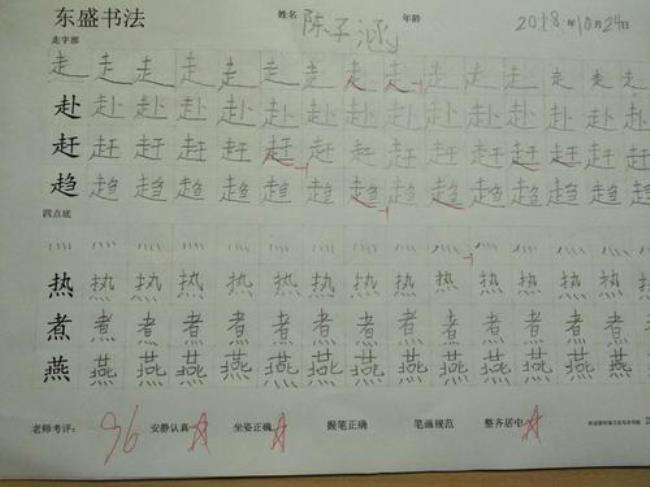 东盛书法 姓名 陈子涵 年龄 2018年10月24日
走字部
走 走 走 走 走 走 走 走 走 走 走 走 走 走 走
赴 赴 赴 赴 赴 赴 赴 赴 赴 赴 赴 赴 赴 赴 赴
赶 赶 赶 赶 赶 赶 赶 赶 赶 赶 赶 赶 赶 赶 赶
趋 趋 趋 趋 趋 趋 趋 趋 趋 趋 趋 趋 趋 趋 趋
四点底
灬 灬 灬 灬 灬 灬 灬 灬 灬 灬 灬 灬 灬 灬 灬
热 热 热 热 热 热 热 热 热 热 热 热 热 热 热
煮 煮 煮 煮 煮 煮 煮 煮 煮 煮 煮 煮 煮 煮 煮
燕 燕 燕 燕 燕 燕 燕 燕 燕 燕 燕 燕 燕 燕 燕
老师考评: 96 安静认真 坐姿正确 握笔正确 笔画规范 整齐居中